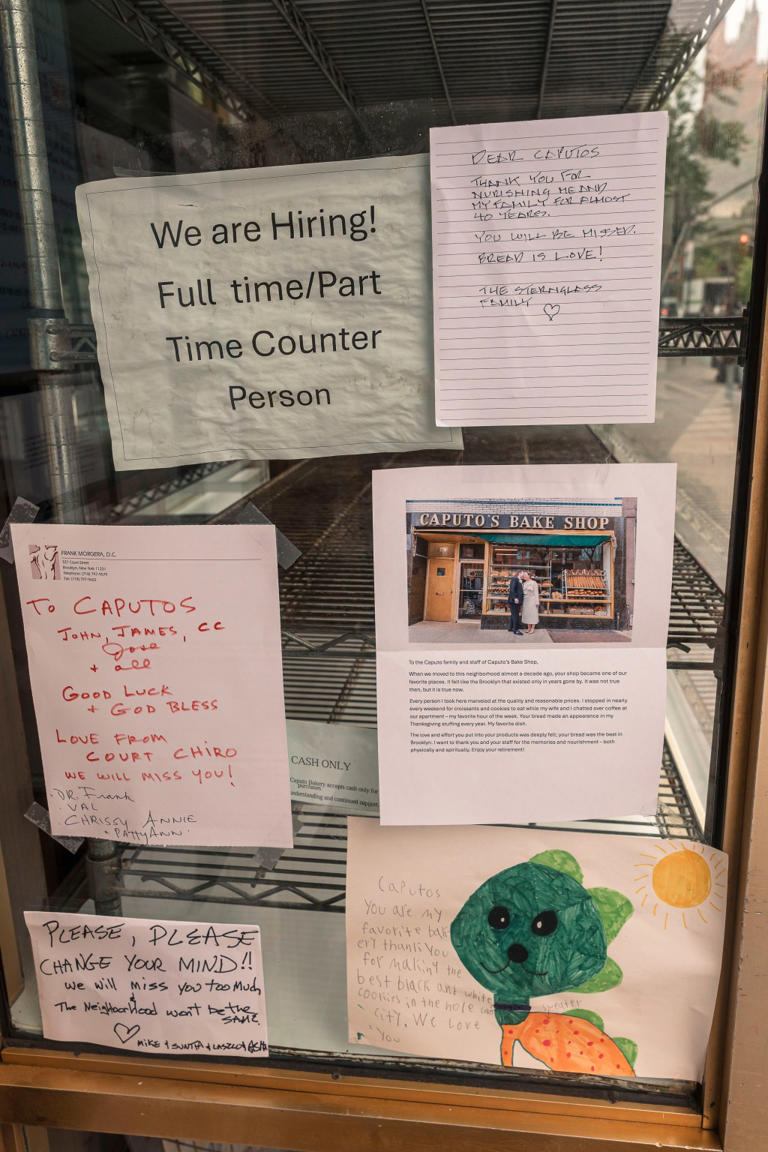 We are Hiring!
Full time/Part
Time Counter
Person
DEAR CAPUTOS
THANK YOU FOR
NURISHING ME AND
MY FAMILY FOR ALMOST
40 YEARS.
YOU WILL BE MISSED.
BREAD IS LOVE!
THE STERNGLASS
FAMILY
FRANK MORGERA, D.C.
Court Street
Brooklyn, New York 11231
TO CAPUTOS
JOHN, JAMES, CC
+ all
GOOD LUCK
+ GOD BLESS
LOVE FROM
COURT CHIRO
WE WILL MISS YOU!
DR. Frank
VAL
CHRISSY ANNIE
PATTYANN
CAPUTO'S BAKE SHOP
To the Caputo family and staff of Caputo's Bake Shop,
When we moved to this neighborhood almost a decade ago, your shop became one of our
favorite places. It felt like the Brooklyn that existed only in years gone by. It was not true
then, but it is true now.
Every person I took here marveled at the quality and reasonable prices. I stopped in nearly
every weekend for croissants and cookies to eat while my wife and I chatted over coffee at
our apartment – my favorite hour of the week. Your bread made an appearance in my
Thanksgiving stuffing every year. My favorite dish.
The love and effort you put into your products was deeply felt; your bread was the best in
Brooklyn. I want to thank you and your staff for the memories and nourishment – both
physically and spiritually. Enjoy your retirement!
CASH ONLY
Caputo Bakery accepts cash only for
purchases
understanding and continued support
PLEASE, PLEASE
CHANGE YOUR MIND!!
we will miss you too much
&
The Neighborhood won't be the
SAME.
MIKE + SUNITA + LASZLO + ASHA
Caputos
You are my
favorite bak
ery thank You
for making the
best black and white
cookies in the hole
City. We Love
You